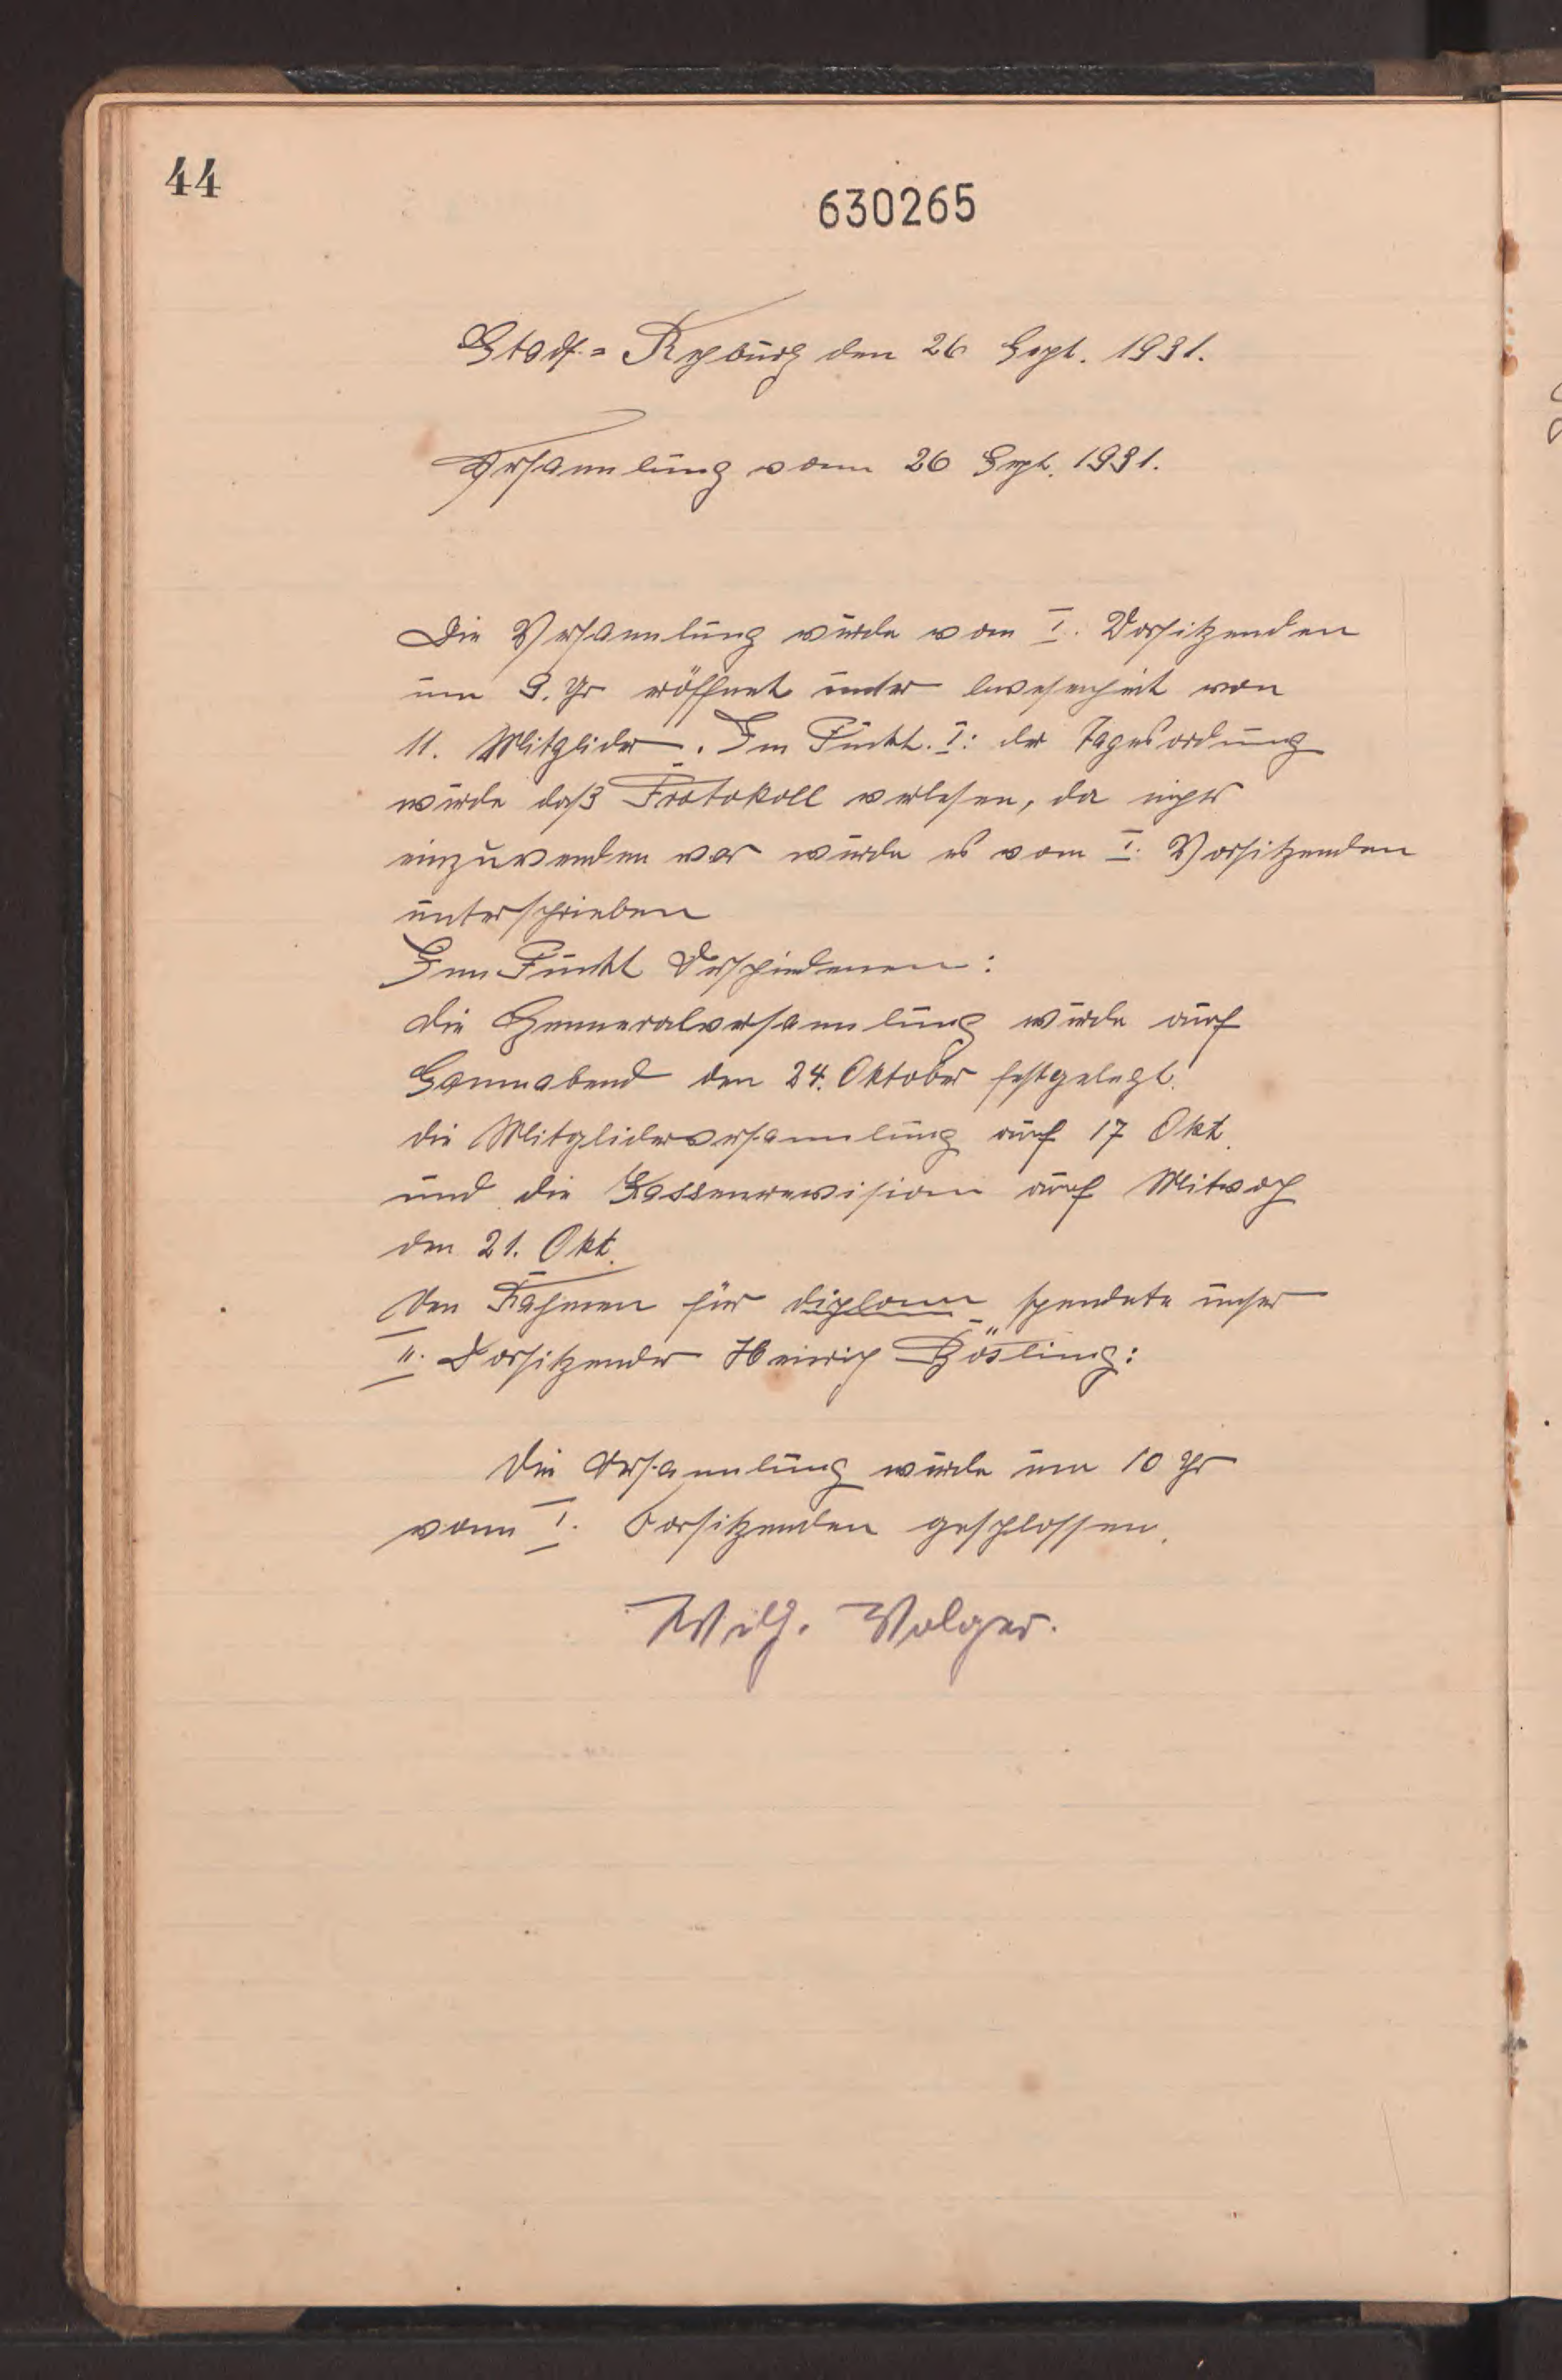 44
630265
Stadt = Rehburg den 26 Sept. 1931.
Versammlung vom 26 Sept. 1931.
Die Versammlung wurde vom I. Vorsitzenden
um 9. Uhr eröffnet unter Anwesenheit von
11. Mitglider. Im Punkt. I: der Tagesordnung
wurde daß Protokoll verlesen, da nichts
einzuwenden war wurde es vom I. Vorsitzenden
unterschrieben
Im Punkt Verschiedenen:
die Genneralversammlung wurde auf
Sonnabend den 24. Oktober festgelegt.
die Mitgliderversammlung auf 17 Okt.
und die Kassenrevision auf Mitwoch
den 21. Okt.
Den Rahmen für diplom spendete unser
II. Vorsitzender Heinrich Bösling:
Die Versammlung wurde um 10 Uhr
vom I. Vorsitzenden geschlossen.
Wilh. Volger.